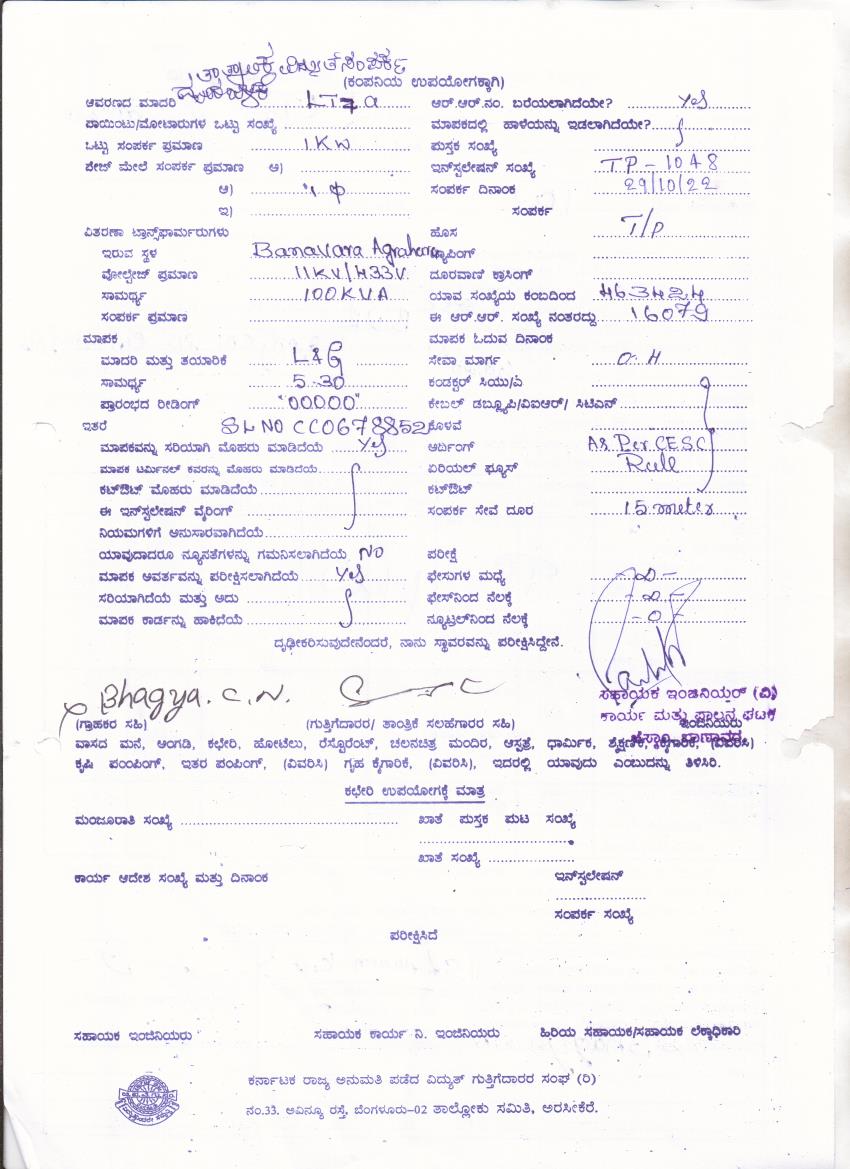 ತಾತ್ಕಾಲಿಕ ವಿದ್ಯುತ್ ಸಂಪರ್ಕ
(ಕಂಪನಿಯ ಉಪಯೋಗಕ್ಕಾಗಿ)
ಆವರಣದ ಮಾದರಿ LT7a ಆರ್.ಆರ್.ನಂ. ಬರೆಯಲಾಗಿದೆಯೇ? Yes
ಪಾಯಿಂಟು/ಮೋಟಾರುಗಳ ಒಟ್ಟು ಸಂಖ್ಯೆ ಮಾಪಕದಲ್ಲಿ ಹಾಳೆಯನ್ನು ಇಡಲಾಗಿದೆಯೇ?
ಒಟ್ಟು ಸಂಪರ್ಕ ಪ್ರಮಾಣ 1KW ಪುಸ್ತಕ ಸಂಖ್ಯೆ
ಪೇಜ್ ಮೇಲೆ ಸಂಪರ್ಕ ಪ್ರಮಾಣ ಅ) ಇನ್‌ಸ್ಟಲೇಷನ್ ಸಂಖ್ಯೆ TP-1048
ಆ) 1φ ಸಂಪರ್ಕ ದಿನಾಂಕ 29/10/22
ಇ) ಸಂಪರ್ಕ
ವಿತರಣಾ ಟ್ರಾನ್ಸ್‌ಫಾರ್ಮರುಗಳು ಹೊಸ T/P
ಇರುವ ಸ್ಥಳ Banavara Agrahara ಟ್ಯಾಪಿಂಗ್
ವೋಲ್ಟೇಜ್ ಪ್ರಮಾಣ 11KV/433V. ದೂರವಾಣಿ ಕ್ರಾಸಿಂಗ್
ಸಾಮರ್ಥ್ಯ 100KVA ಯಾವ ಸಂಖ್ಯೆಯ ಕಂಬದಿಂದ 463424
ಸಂಪರ್ಕ ಪ್ರಮಾಣ ಈ ಆರ್.ಆರ್. ಸಂಖ್ಯೆ ನಂತರದ್ದು 16079
ಮಾಪಕ ಮಾಪಕ ಓದುವ ದಿನಾಂಕ
ಮಾದರಿ ಮತ್ತು ತಯಾರಿಕೆ L&G ಸೇವಾ ಮಾರ್ಗ O.H
ಸಾಮರ್ಥ್ಯ 5-30 ಕಂಡಕ್ಟರ್ ಸಿಯು/ಎ
ಪ್ರಾರಂಭದ ರೀಡಿಂಗ್ "00000" ಕೇಬಲ್ ಡಬ್ಲ್ಯೂಪಿ/ವಿಐಆರ್/ ಸಿಟಿಎಸ್
ಇತರೆ SL NO CC0678852 ಕೊಳವೆ
ಮಾಪಕವನ್ನು ಸರಿಯಾಗಿ ಮೊಹರು ಮಾಡಿದೆಯೆ Yes ಅರ್ದಿಂಗ್ As Per CESC
ಮಾಪಕ ಟರ್ಮಿನಲ್ ಕವರನ್ನು ಮೊಹರು ಮಾಡಿದೆಯೆ ಏರಿಯಲ್ ಫ್ಯೂಸ್ Rule
ಕಟ್‌ಔಟ್ ಮೊಹರು ಮಾಡಿದೆಯೆ ಕಟ್‌ಔಟ್
ಈ ಇನ್‌ಸ್ಟಲೇಷನ್ ವೈರಿಂಗ್ ಸಂಪರ್ಕ ಸೇವೆ ದೂರ 15 meter
ನಿಯಮಗಳಿಗೆ ಅನುಸಾರವಾಗಿದೆಯೆ
ಯಾವುದಾದರೂ ನ್ಯೂನತೆಗಳನ್ನು ಗಮನಿಸಲಾಗಿದೆಯೆ NO ಪರೀಕ್ಷೆ
ಮಾಪಕ ಆವರ್ತವನ್ನು ಪರೀಕ್ಷಿಸಲಾಗಿದೆಯೆ Yes ಫೇಸುಗಳ ಮಧ್ಯೆ
ಸರಿಯಾಗಿದೆಯೆ ಮತ್ತು ಅದು ಫೇಸ್‌ನಿಂದ ನೆಲಕ್ಕೆ
ಮಾಪಕ ಕಾರ್ಡನ್ನು ಹಾಕಿದೆಯೆ ನ್ಯೂಟ್ರಲ್‌ನಿಂದ ನೆಲಕ್ಕೆ -0-
ದೃಢೀಕರಿಸುವುದೇನೆಂದರೆ, ನಾನು ಸ್ಥಾವರವನ್ನು ಪರೀಕ್ಷಿಸಿದ್ದೇನೆ.
Bhagya. C. N.
ಸಹಾಯಕ ಇಂಜಿನಿಯರ್ (ವಿ)
ಕಾರ್ಯ ಮತ್ತು ಪಾಲನ ಘಟಕ
(ಗ್ರಾಹಕರ ಸಹಿ) (ಗುತ್ತಿಗೆದಾರರ/ ತಾಂತ್ರಿಕ ಸಲಹೆಗಾರರ ಸಹಿ) ಇಂಜಿನಿಯರು
ವಾಸದ ಮನೆ, ಅಂಗಡಿ, ಕಛೇರಿ, ಹೋಟೆಲು, ರೆಸ್ಟೊರೆಂಟ್, ಚಲನಚಿತ್ರ ಮಂದಿರ, ಆಸ್ಪತ್ರೆ, ಧಾರ್ಮಿಕ, ಶೈಕ್ಷಣಿಕ, ಕೈಗಾರಿಕೆ, (ವಿವರಿಸಿ)
ಕೃಷಿ ಪಂಪಿಂಗ್, ಇತರ ಪಂಪಿಂಗ್, (ವಿವರಿಸಿ) ಗೃಹ ಕೈಗಾರಿಕೆ, (ವಿವರಿಸಿ), ಇದರಲ್ಲಿ ಯಾವುದು ಎಂಬುದನ್ನು ತಿಳಿಸಿರಿ.
ಕಛೇರಿ ಉಪಯೋಗಕ್ಕೆ ಮಾತ್ರ
ಮಂಜೂರಾತಿ ಸಂಖ್ಯೆ ಖಾತೆ ಪುಸ್ತಕ ಪುಟ ಸಂಖ್ಯೆ
ಖಾತೆ ಸಂಖ್ಯೆ
ಕಾರ್ಯ ಆದೇಶ ಸಂಖ್ಯೆ ಮತ್ತು ದಿನಾಂಕ ಇನ್‌ಸ್ಟಲೇಷನ್
ಸಂಪರ್ಕ ಸಂಖ್ಯೆ
ಪರೀಕ್ಷಿಸಿದೆ
ಸಹಾಯಕ ಇಂಜಿನಿಯರು ಸಹಾಯಕ ಕಾರ್ಯ ನಿ. ಇಂಜಿನಿಯರು ಹಿರಿಯ ಸಹಾಯಕ/ಸಹಾಯಕ ಲೆಕ್ಕಾಧಿಕಾರಿ
ಕರ್ನಾಟಕ ರಾಜ್ಯ ಅನುಮತಿ ಪಡೆದ ವಿದ್ಯುತ್ ಗುತ್ತಿಗೆದಾರರ ಸಂಘ (ರಿ)
ನಂ.33. ಅವಿನ್ಯೂ ರಸ್ತೆ, ಬೆಂಗಳೂರು-02 ತಾಲ್ಲೋಕು ಸಮಿತಿ, ಅರಸೀಕೆರೆ.